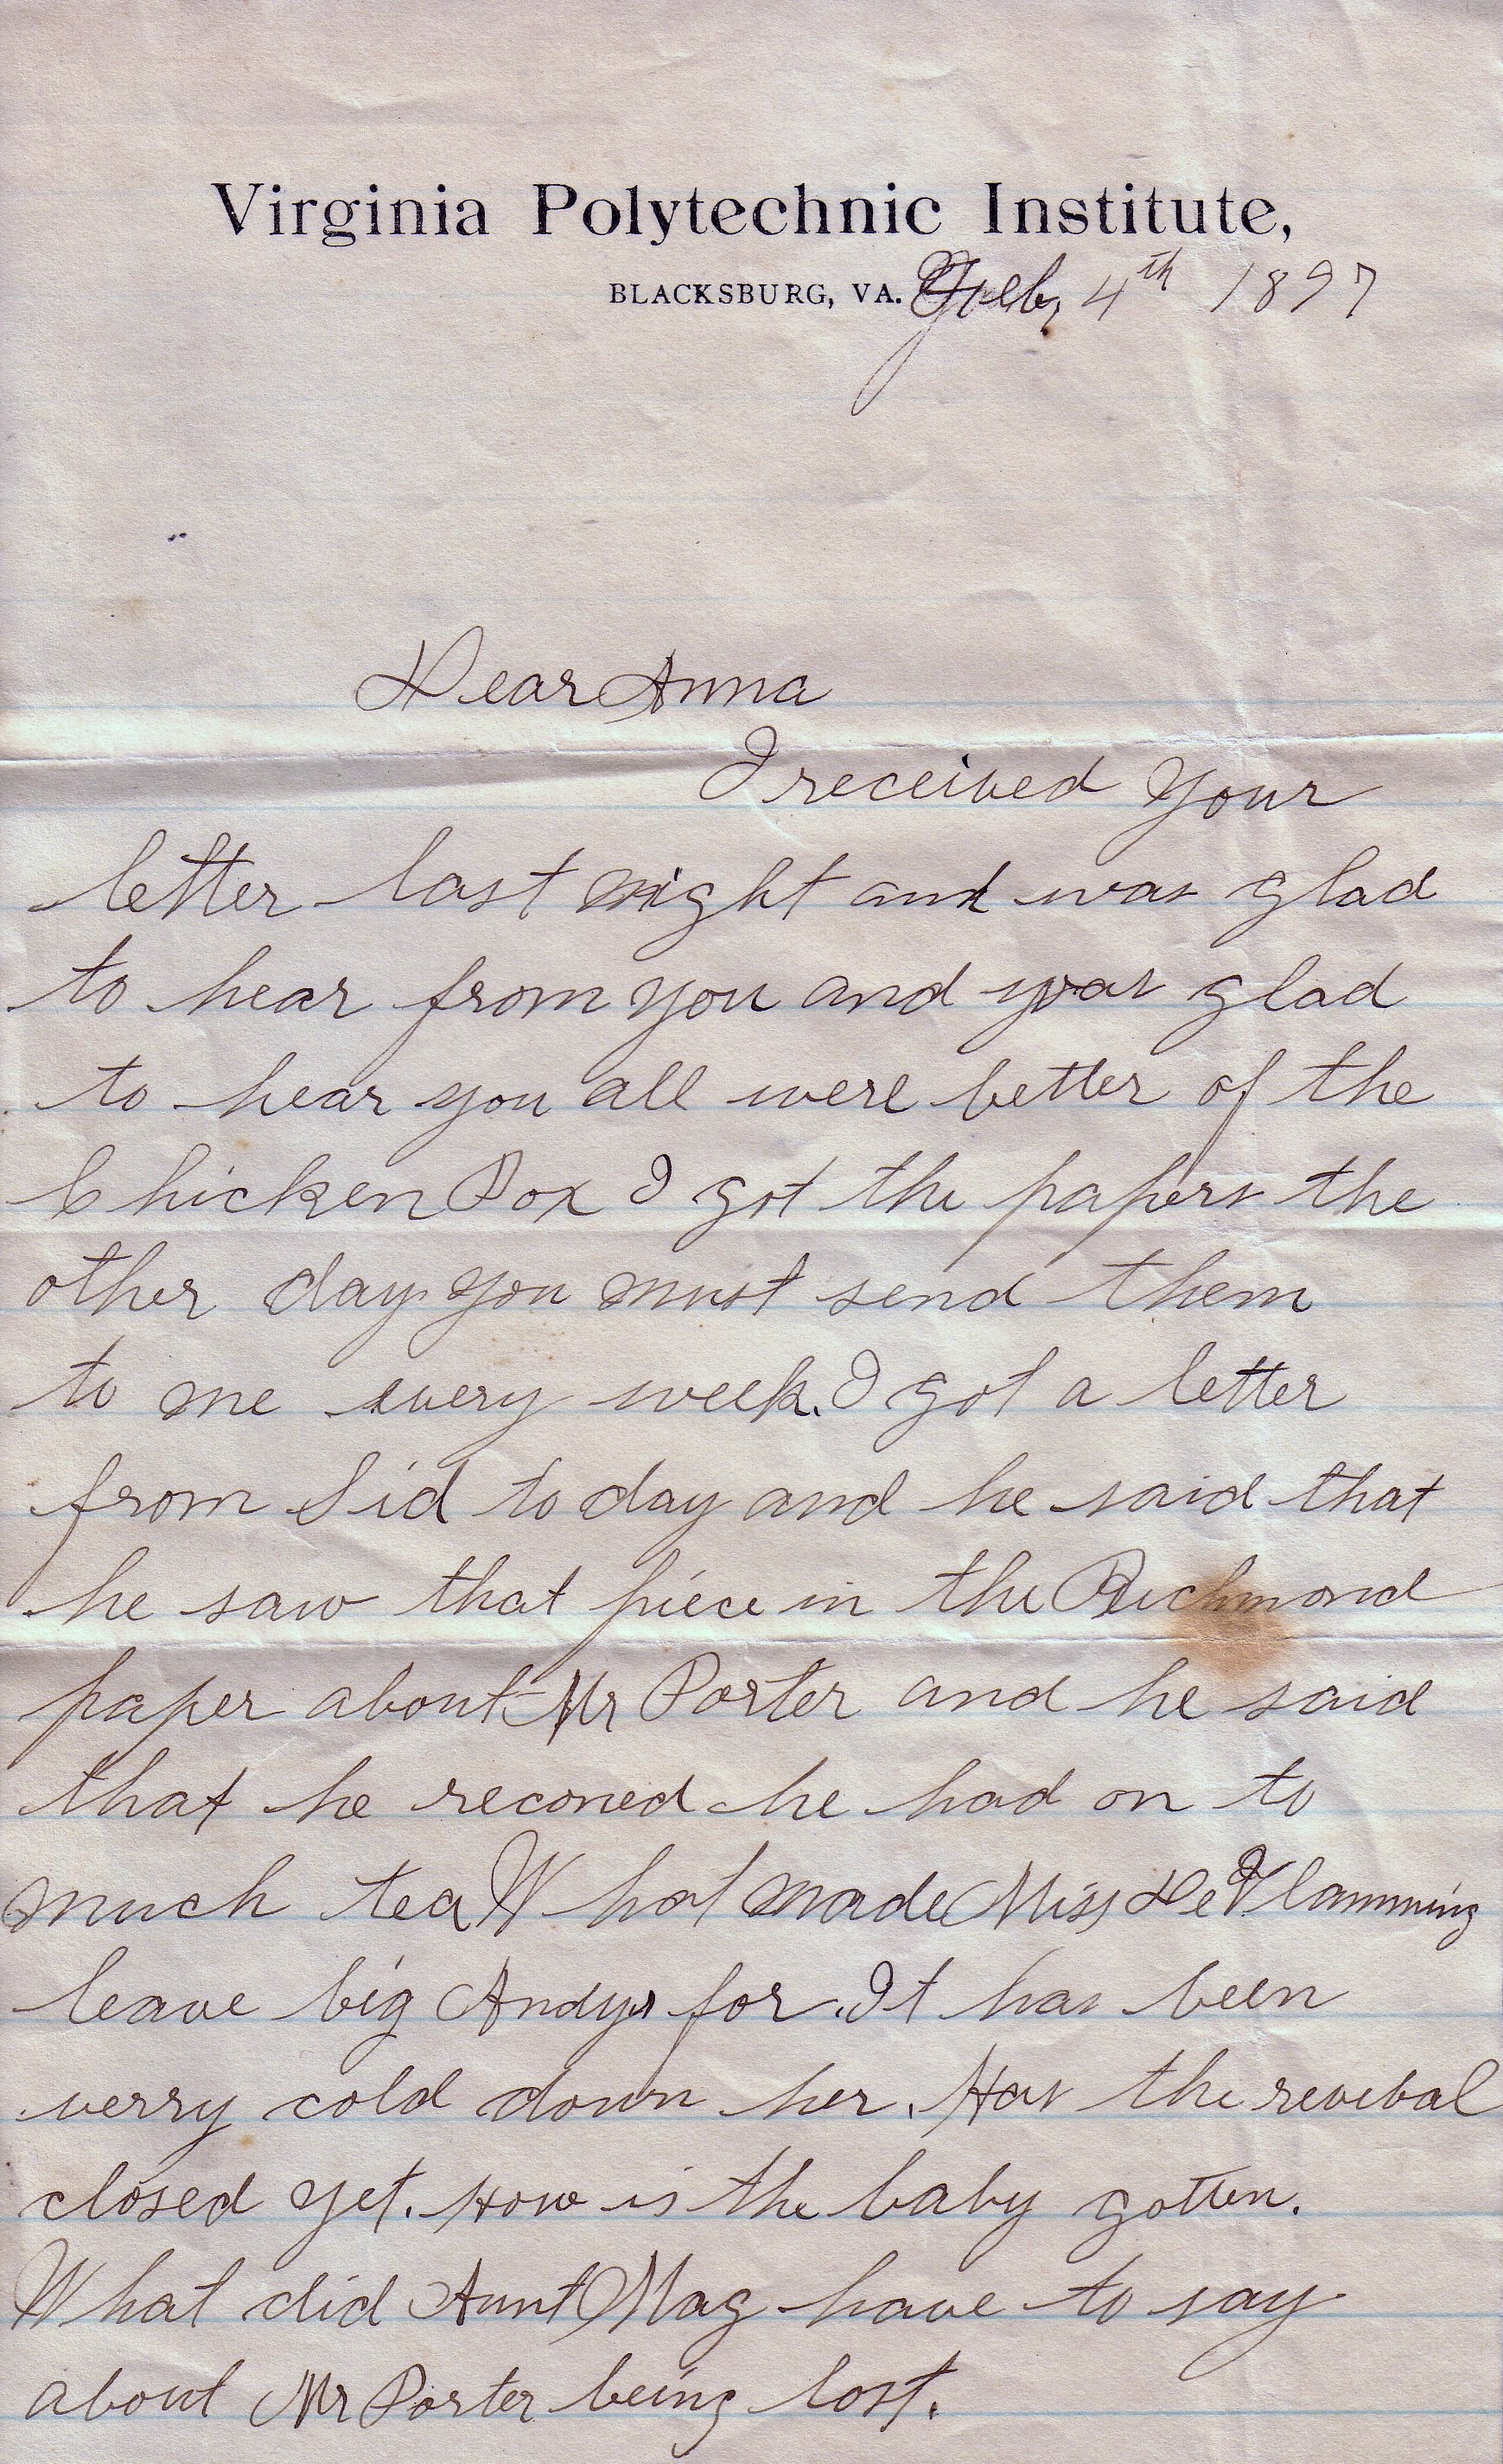 Virginia Polytechnic Institute,
BLACKSBURG, VA. Feb, 4th 1897
Dear Anna
I received your
letter last night and was glad
to hear from you and was glad
to hear you all were better of the
Chicken Pox I got the papers the
other day you must send them
to me every week. I got a letter
from Sid to day and he said that
he saw that piece in the Richmond
paper about Mr Porter and he said
that he reconed he had on to
much tea What made Miss DeVlamming
leave big Andys for. It has been
verry cold down her. Has the revival
closed yet. How is the baby gotten.
What did Aunt Mag have to say
about Mr Porter being lost.